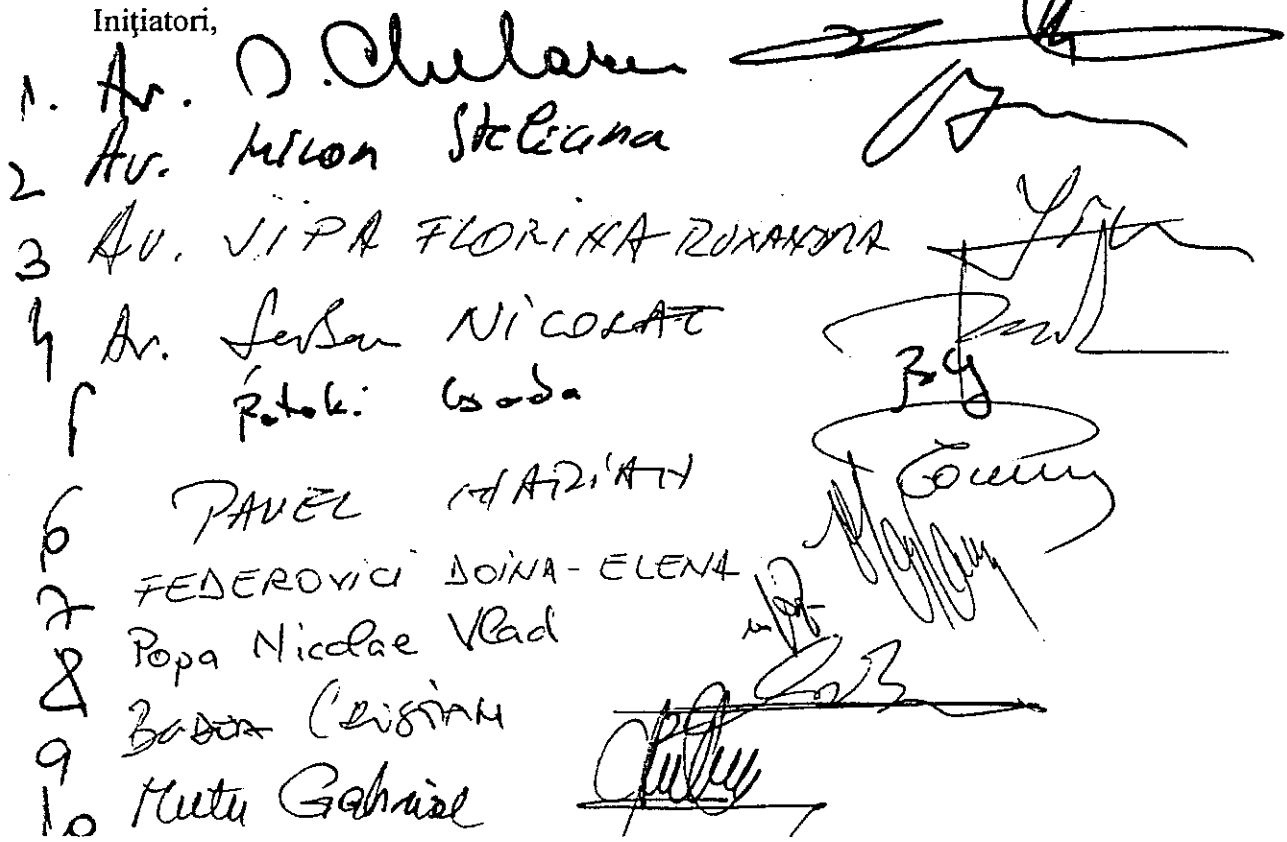 Iniţiatori,
1. Av. D. Chelaru
2 Av. Miron Steliana
3 AV. JIPA FLORINA-RUXANDRA
4 Av. Serban NICOLAE
5 Pataki Csaba
6 PAVEL MARIAN
7 FEDEROVICI DOINA-ELENA
8 Popa Nicolae Vlad
9 BODEA CRISTIAN
10 Mutu Gabriel